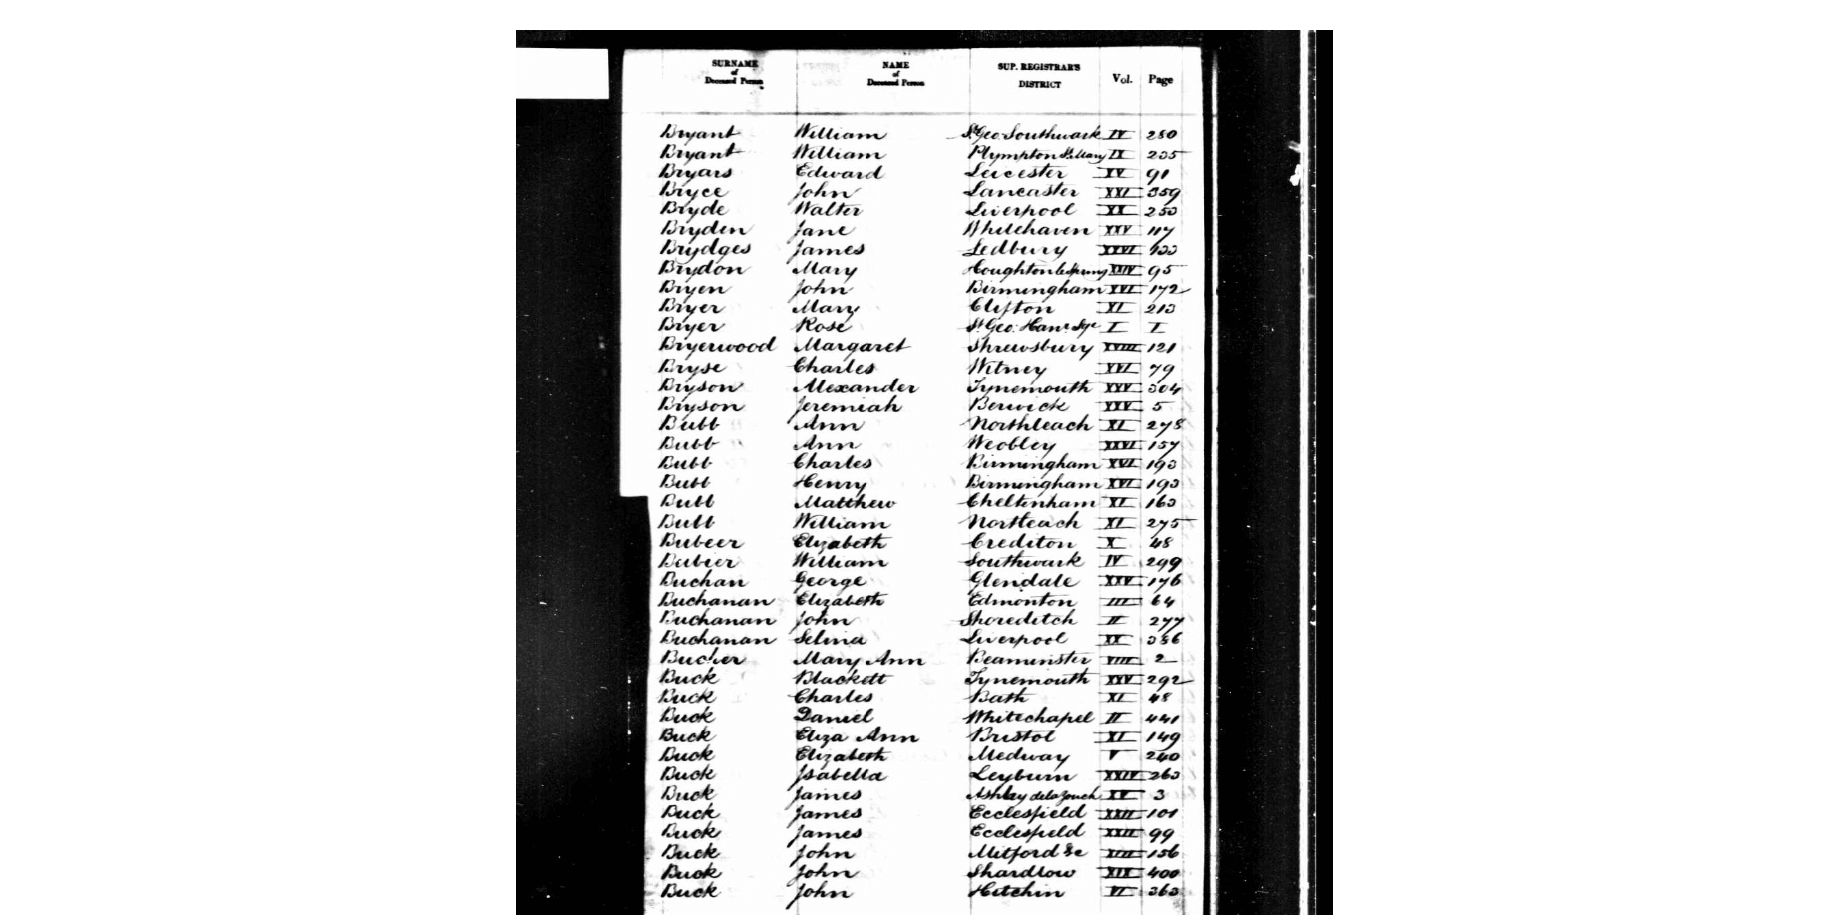 SURNAME of Deceased Person NAME of Deceased Person SUP. REGISTRAR'S DISTRICT Vol. Page
Bryant William St Geo Southwark IV 280
Bryant William Plympton St Mary IX 235
Bryars Edward Leicester XV 91
Bryce John Lancaster XXI 359
Bryde Walter Liverpool XX 253
Bryden Jane Whitehaven XXV 117
Brydges James Ledbury XXVI 133
Brydon Mary Houghton le Spring XXIV 95
Bryen John Birmingham XVI 172
Bryer Mary Clifton XI 213
Bryer Rose St Geo: Hanr Sqe I I
Bryerwood Margaret Shrewsbury XVIII 121
Bryse Charles Witney XVI 79
Bryson Alexander Tynemouth XXV 304
Bryson Jeremiah Berwick XXV 5
Bubb Ann Northleach XI 278
Bubb Ann Weobley XXVI 157
Bubb Charles Birmingham XVI 193
Bubb Henry Birmingham XVI 193
Bubb Matthew Cheltenham XI 163
Bubb William Northleach XI 275
Bubeer Elizabeth Crediton X 48
Bubier William Southwark IV 299
Buchan George Glendale XXV 176
Buchanan Elizabeth Edmonton III 64
Buchanan John Shoreditch II 277
Buchanan Selina Liverpool XX 386
Bucher Mary Ann Beaminster VIII 2
Buck Blackett Tynemouth XXV 292
Buck Charles Bath XI 48
Buck Daniel Whitechapel II 441
Buck Eliza Ann Bristol XI 149
Buck Elizabeth Medway V 240
Buck Isabella Leyburn XXIV 263
Buck James Ashby de la Zouch XV 3
Buck James Ecclesfield XXII 101
Buck James Ecclesfield XXII 99
Buck John Mitford &c XIII 156
Buck John Shardlow XIX 400
Buck John Hitchin VI 363